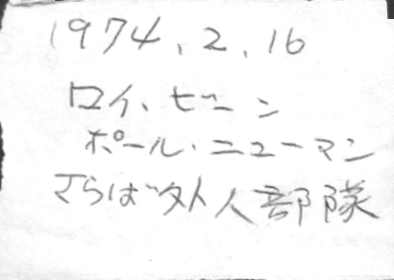 1974.2.16
ロイ、ビーン
ポール・ニューマン
さらば外人部隊